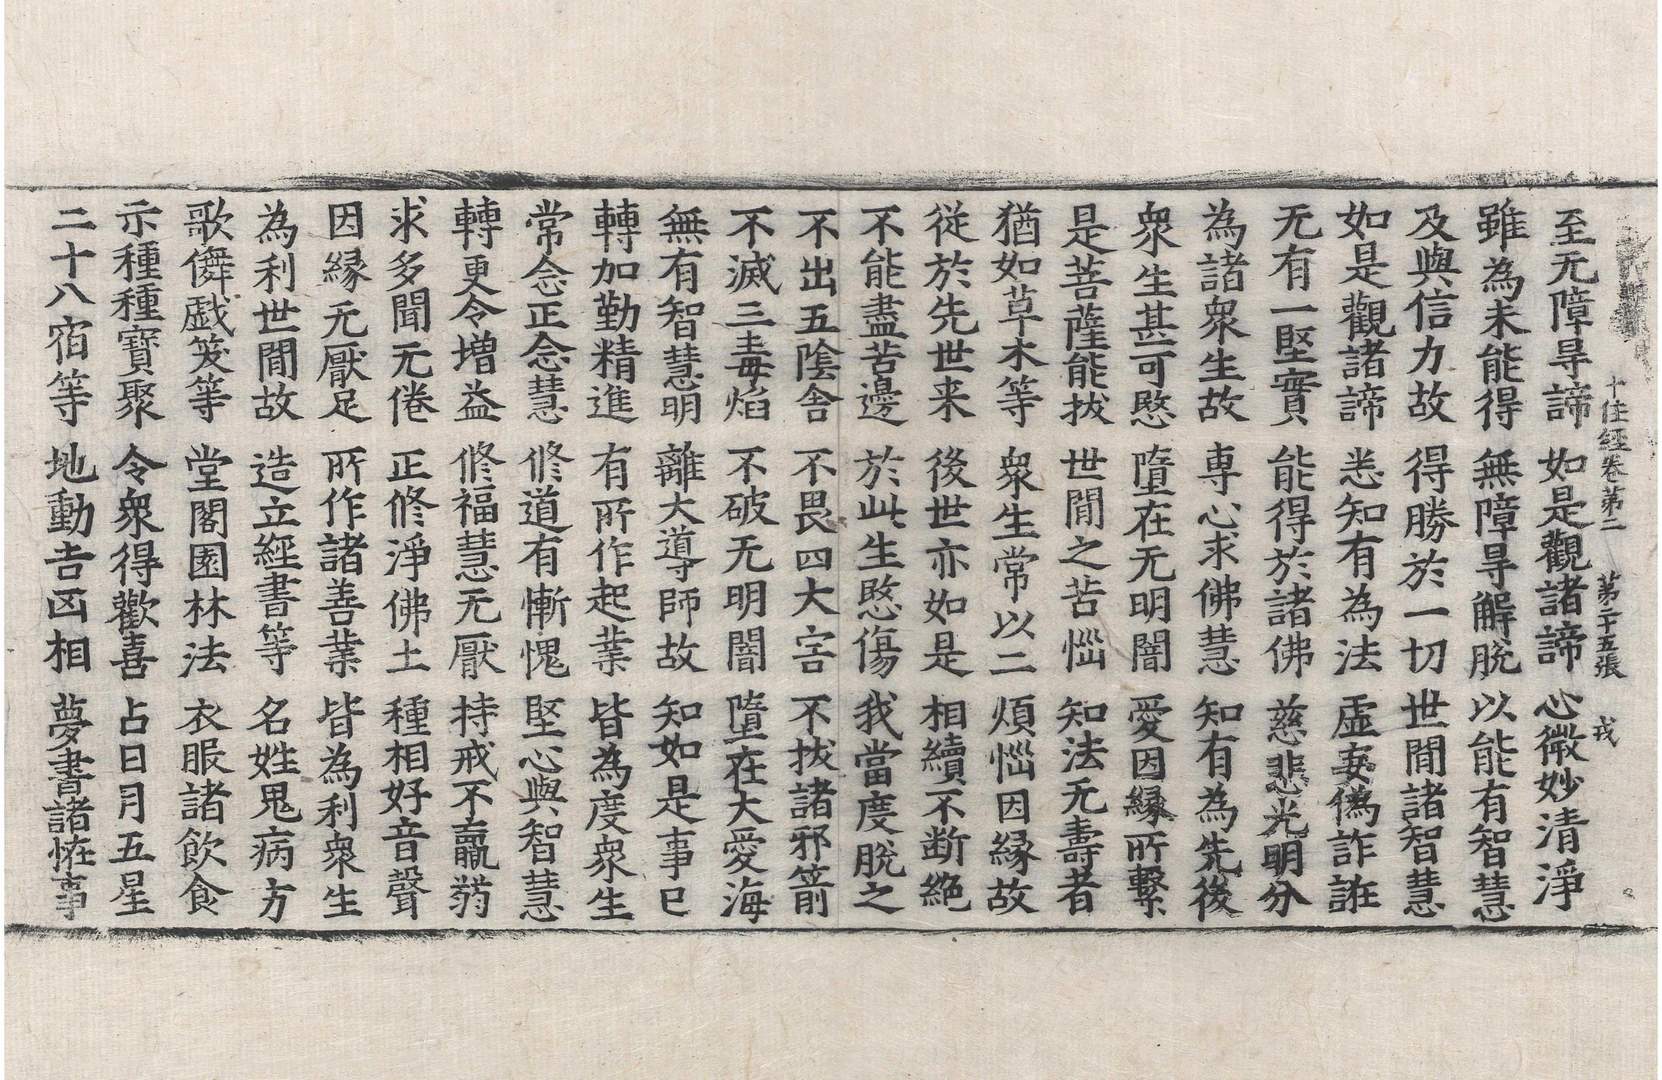 十住經卷第二　第二十五張　戎
至无障㝵諦　如是觀諸諦　心微妙清淨
雖為未能得　無障㝵解脫　以能有智慧
及與信力故　得勝於一切　世閒諸智慧
如是觀諸諦　悉知有為法　虛妄偽詐誑
无有一堅實　能得於諸佛　慈悲光明分
為諸衆生故　專心求佛慧　知有為先後
衆生甚可愍　墮在无明闇　愛因緣所繫
是菩薩能拔　世閒之苦惱　知法无壽者
猶如草木等　衆生常以二　煩惱因緣故
從於先世来　後世亦如是　相續不断絶
不能盡苦邊　於此生愍傷　我當度脫之
不出五陰舍　不畏四大害　不拔諸邪箭
不滅三毒焰　不破无明闇　墮在大愛海
無有智慧明　離大導師故　知如是事已
轉加勤精進　有所作起業　皆為度衆生
常念正念慧　修道有慚愧　堅心與智慧
轉更令增益　修福慧无厭　持戒不羸弱
求多聞无倦　正修淨佛土　種相好音聲
因緣无厭足　所作諸善業　皆為利衆生
為利世閒故　造立經書等　名姓鬼病方
歌儛戱笑等　堂閣園林法　衣服諸飲食
示種種寶聚　令衆得歡喜　占日月五星
二十八宿等　地動吉凶相　夢書諸恠事